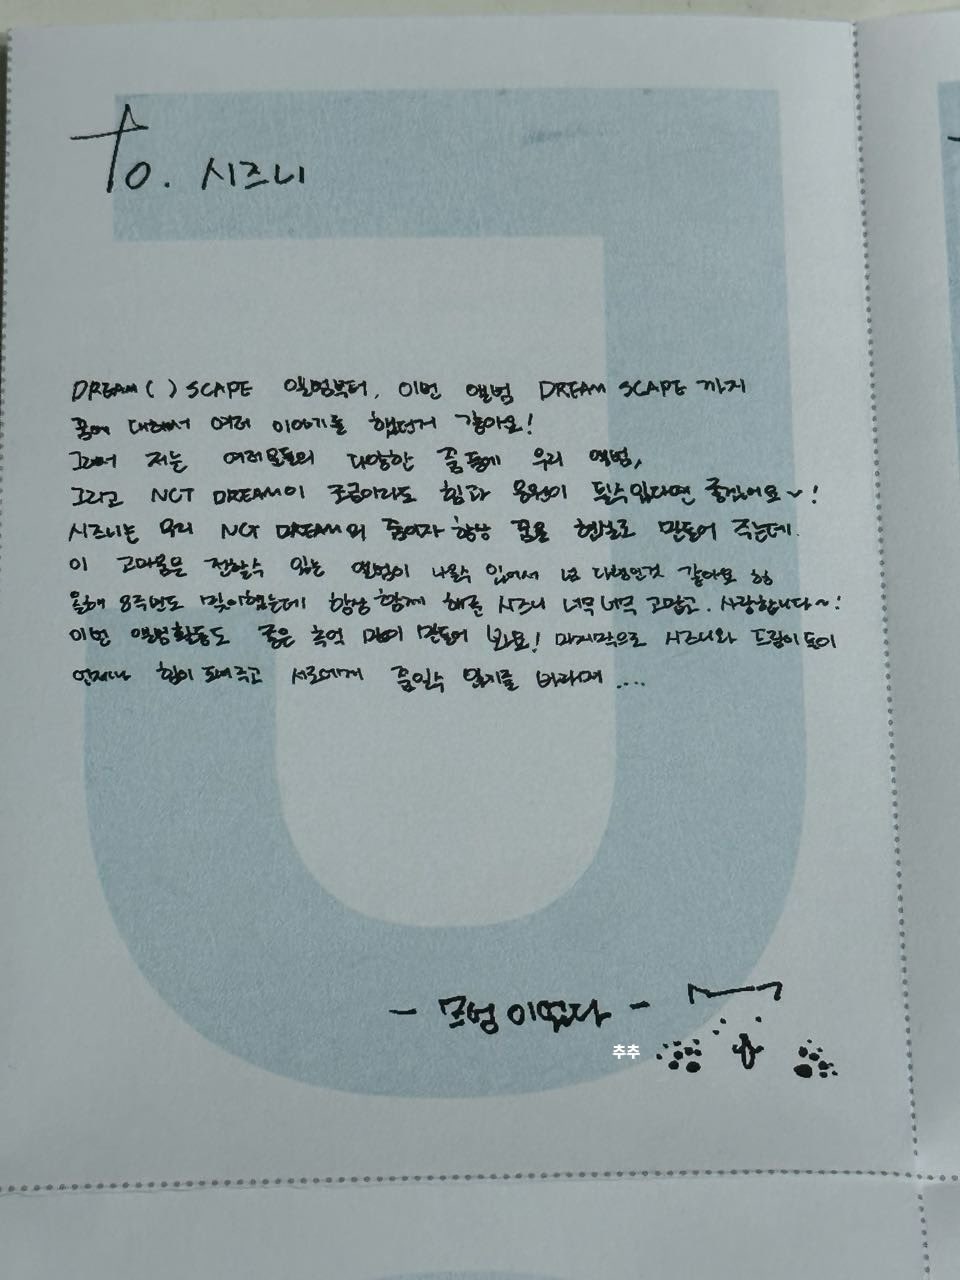 To. 시즈니
DREAM( )SCAPE 앨범부터, 이번 앨범 DREAM SCAPE 까지
꿈에 대해서 여러 이야기를 했던거 같아요!
그래서 저는 여러분들의 다양한 꿈들에 우리 앨범,
그리고 NCT DREAM이 조금이라도 힘과 응원이 될수있다면 좋겠어요~!
시즈니는 우리 NCT DREAM의 꿈이자 항상 꿈을 현실로 만들어 주는데.
이 고마움은 전할수 있는 앨범이 나올수 있어서 넘 다행인것 같아요
올해 8주년도 맞이했는데 항상 함께 해준 시즈니 너무너무 고맙고. 사랑합니다~!
이번 앨범활동도 좋은 추억 많이 만들어 봐요! 마지막으로 시즈니와 드림이들이
언제나 힘이 돼주고 서로에게 쉼일수 있기를 바라며 ....
이었다
추추